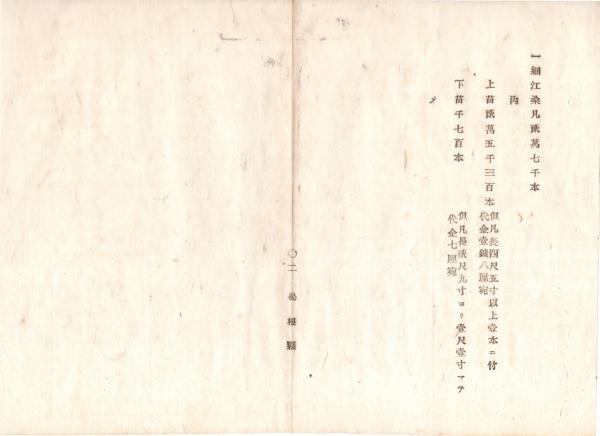 一細江桑凡貳萬七千本
内
上苗貳萬五千三百本
但凡長四尺五寸以上壹本ニ付
代金壹錢八厘宛
下苗千七百本
但凡長貳尺九寸ヨリ壹尺壹寸マテ
代金七厘宛
〇二
縣